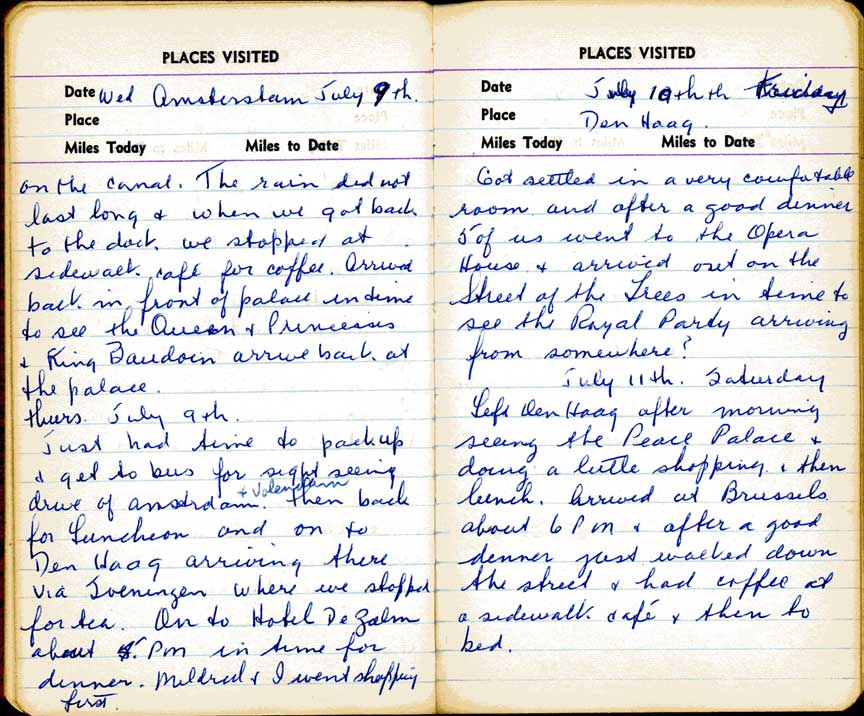 PLACES VISITED
Date Wed Amsterstam July 9th.
Place
Miles Today Miles to Date
on the canal. The rain did not
last long & when we got back
to the dock we stopped at
sidewalk café for coffee. Arrived
back in front of palace in time
to see the Queen & Princesses
& King Baudoin arrive back at
the palace.
Thurs. July 9th.
Just had time to pack up
& get to bus for sight seeing
drive of Amsterdam. & Volendam Then back
for Luncheon and on to
Den Haag arriving there
via Sveningen where we stopped
for tea. On to Hotel De Zalm
about 5. PM in time for
dinner. Mildred & I went shopping
first.
PLACES VISITED
Date July 10th th Friday
Place Den Haag.
Miles Today Miles to Date
Got settled in a very comfortable
room and after a good dinner
5 of us went to the Opera
House & arrived out on the
Street of the Trees in time to
see the Royal Party arriving
from somewhere?
July 11th. Saturday
Left Den Haag after morning
seeing the Peace Palace &
doing a little shopping. & then
lunch. Arrived at Brussels
about 6 PM & after a good
dinner just walked down
the street & had coffee at
a sidewalk café & then to
bed.